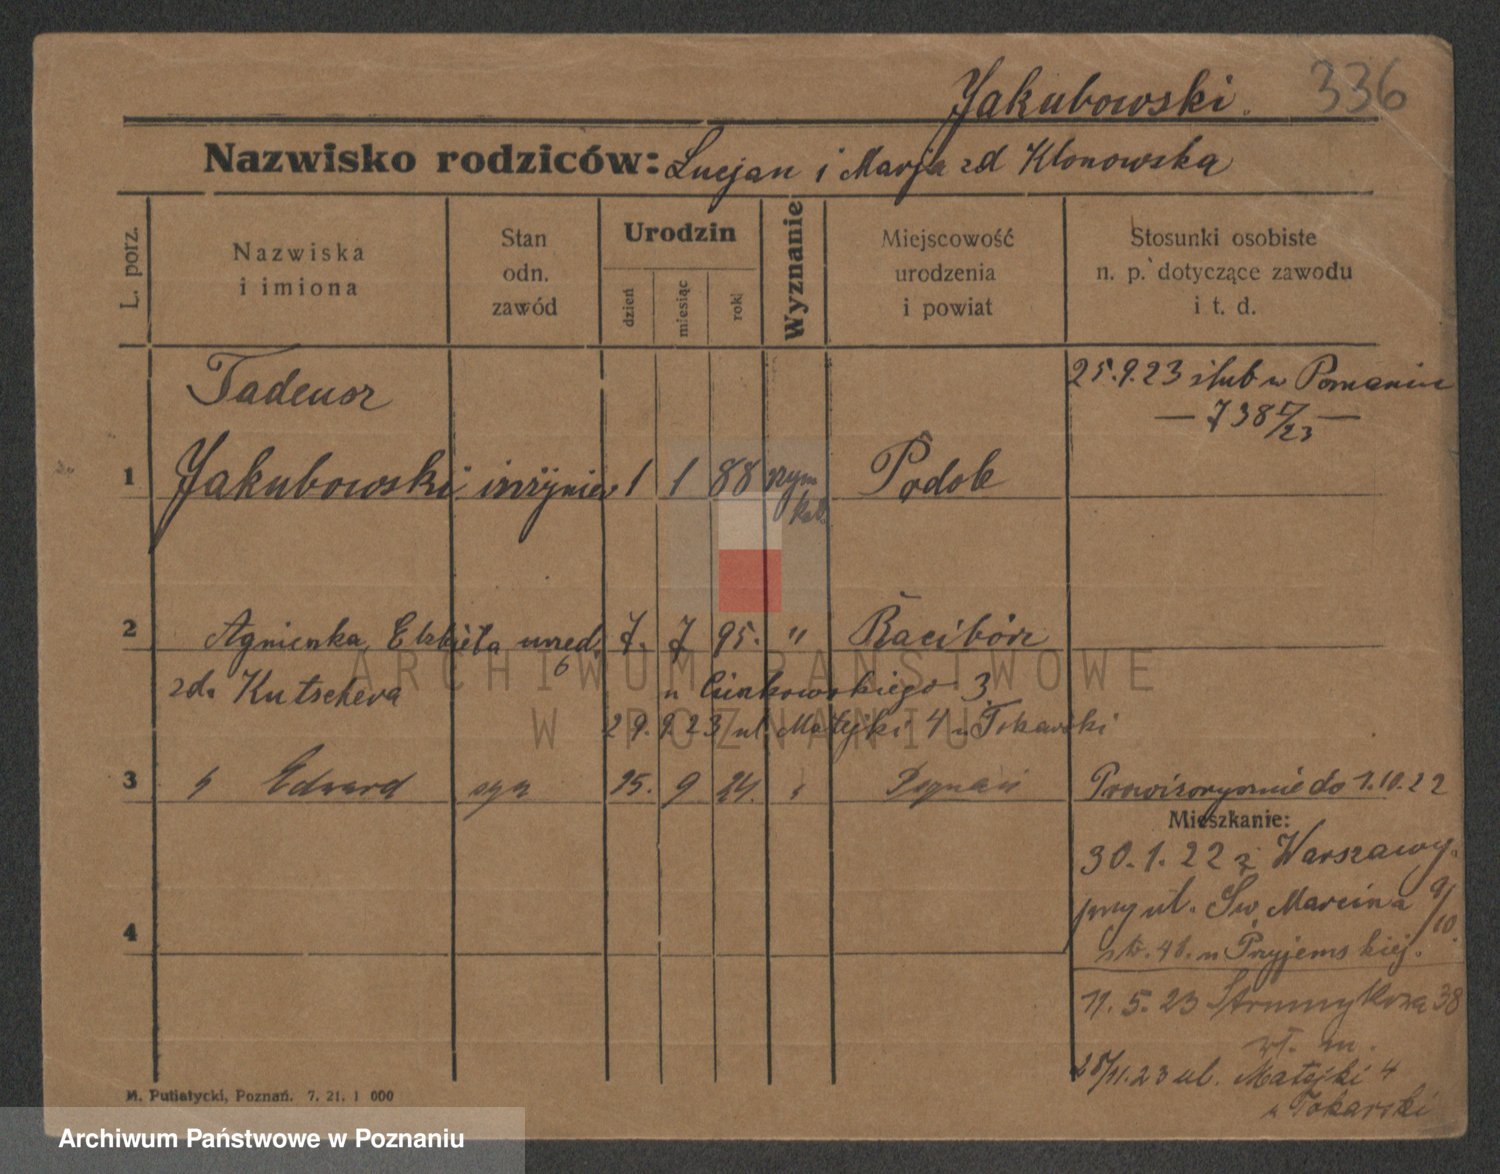 Jakubowski. 336
Nazwisko rodziców: Lucjan i Marja zd Klonowska
L. porz.
Nazwiska
i imiona
Stan
odn.
zawód
Urodzin
dzień
miesiąc
rok
Wyznanie
Miejscowość
urodzenia
i powiat
Stosunki osobiste
n. p. dotyczące zawodu
i t. d.
25.9.23 ślub w Poznaniu
— 738/23 —
Tadeusz
1 Jakubowski inżynier 1 1 88 rzym kat. Podole
2 Agnieszka Elżbieta urzęd. 7. 7 95. " Racibórz
zd. Kutschera
u 3
29.9.23 ul. Matejki 4 u Tokarski
3 Edward syn 25. 9 24. Poznań
Prowizorycznie do 1.10.22
Mieszkanie:
30.1.22 z Warszawy
przy ul. Św. Marcina 9/10.
u Przyjemskiej.
4
11.5.23 38
28/11.23 ul. Matejki 4
u Tokarski
M. Putiatycki, Poznań. 7. 21. 1 000
ARCHIWUM PAŃSTWOWE
W POZNANIU
Archiwum Państwowe w Poznaniu